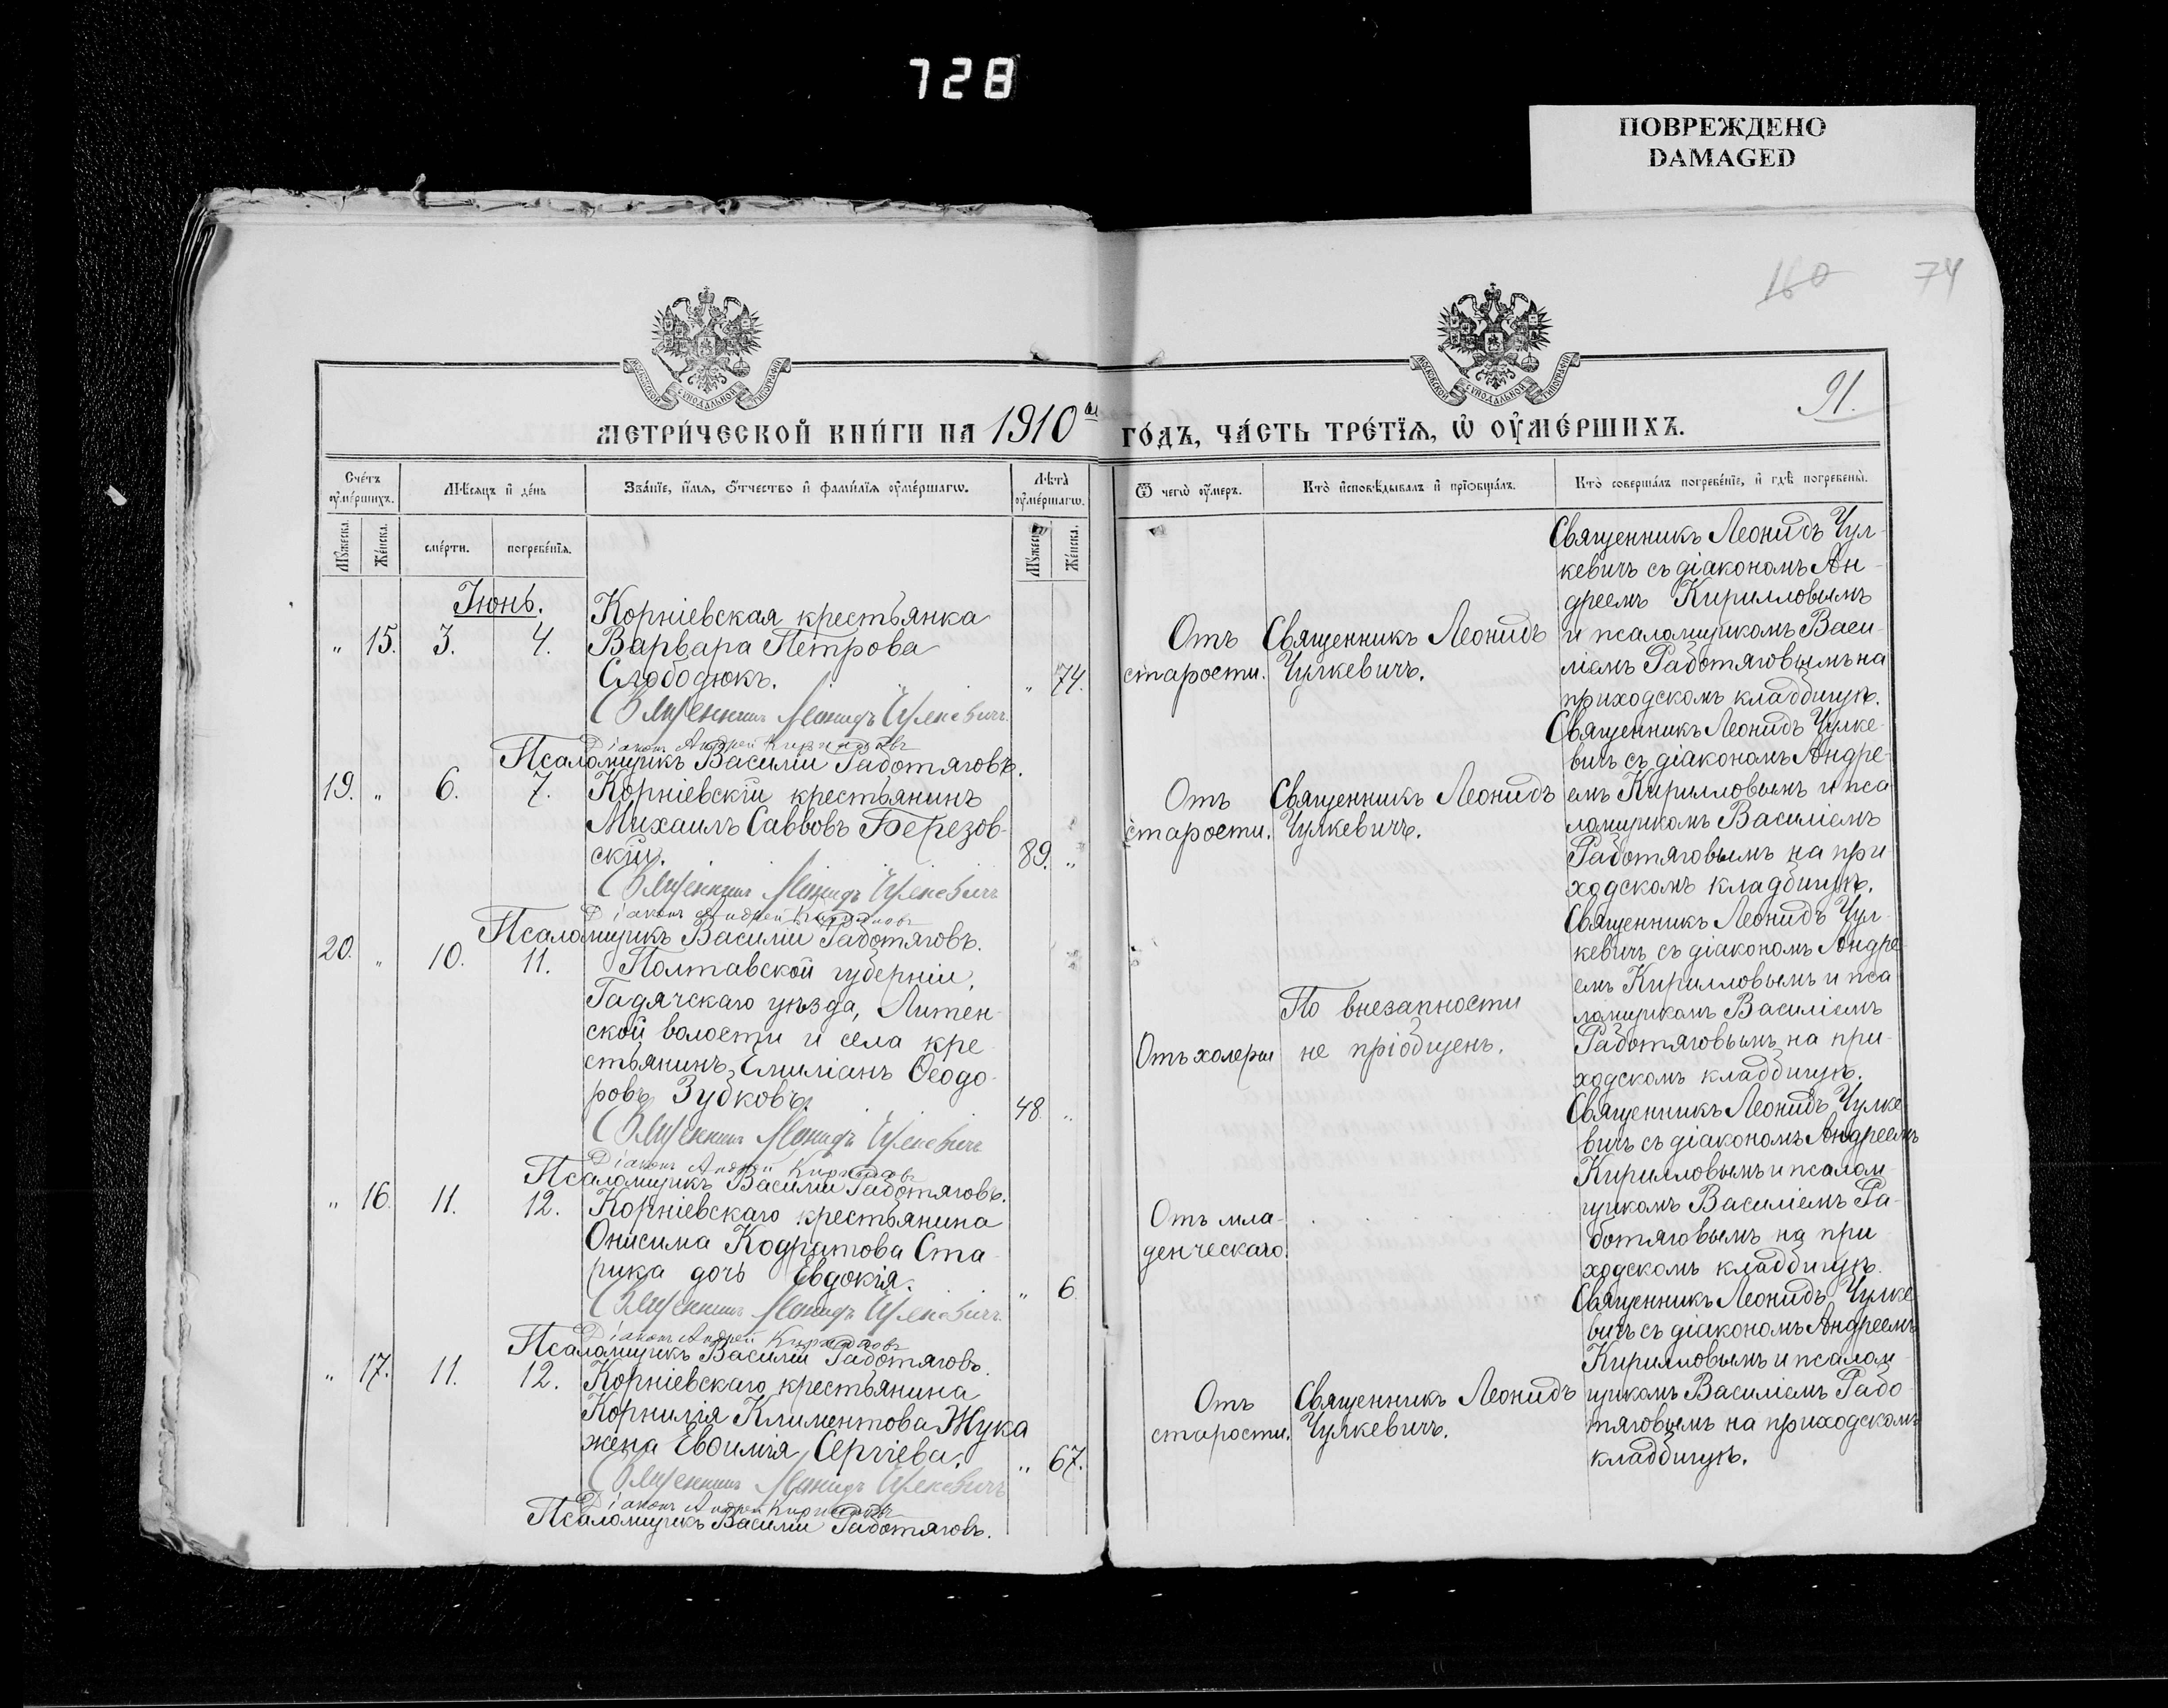 728
ПОВРЕЖДЕНО
DAMAGED
160
74
МОСКОВСКОЙ СѴНОДАЛЬНОЙ ТИПОГРАФІИ
МОСКОВСКОЙ СѴНОДАЛЬНОЙ ТИПОГРАФІИ
91.
МЕТРИ́ЧЕСКОЙ КНИ́ГИ НА 1910ый ГО́ДЪ, ЧА́СТЬ ТРЕ́ТЇѦ, Ѽ ОУ҆МЕ́РШИХЪ.
Сче́тъ оу҆ме́ршихъ.
Мѣ́сяцъ и҆ де́нь
Зва́нїе, и҆́мѧ, ѻ҆́тчество и҆ фами́лїѧ оу҆ме́ршагѡ.
Лѣ́та̀ оу҆ме́ршагѡ.
Ѿ чегѡ̀ оу҆́меръ.
Кто̀ и҆сповѣ́дывалъ и҆ прїѡбща́лъ.
Кто̀ соверша́лъ погребе́нїе, и҆ гдѣ̀ погребены̀.
Мꙋ́жеска.
Же́нска.
сме́рти.
погребе́нїѧ.
Мꙋ́жеска.
Же́нска.
Іюнь.
„ 15. 3. 4.
Корніевская крестьянка
Варвара Петрова
Слободюкъ.
„ 74.
Священникъ Леонидъ Чулкевичъ
Діаконъ Андрей Кирилловъ
Псаломщикъ Василій Работяговъ.
Отъ
старости.
Священникъ Леонидъ
Чулкевичъ.
Священникъ Леонидъ Чул-
кевичъ съ діакономъ Ан-
дреемъ Кирилловымъ
и псаломщикомъ Васи-
ліемъ Работяговымъ на
приходскомъ кладбищѣ.
19. „ 6. 7.
Корніевскій крестьянинъ
Михаилъ Саввовъ Березов-
скій.
89. „
Священникъ Леонидъ Чулкевичъ
Діаконъ Андрей Кирилловъ
Псаломщикъ Василій Работяговъ.
Отъ
старости.
Священникъ Леонидъ
Чулкевичъ.
Священникъ Леонидъ Чулке-
вичъ съ діакономъ Андре-
емъ Кирилловымъ и пса-
ломщикомъ Василіемъ
Работяговымъ на при-
ходскомъ кладбищѣ.
20. „ 10. 11.
Полтавской губерніи,
Гадячскаго уѣзда, Лютен-
ской волости и села кре-
стьянинъ Емиліанъ Ѳеодо-
ровъ Зубковъ.
48. „
Священникъ Леонидъ Чулкевичъ
Діаконъ Андрей Кирилловъ
Псаломщикъ Василій Работяговъ.
Отъ холеры
По внезапности
не пріобщенъ.
Священникъ Леонидъ Чул-
кевичъ съ діакономъ Андре-
емъ Кирилловымъ и пса-
ломщикомъ Василіемъ
Работяговымъ на при-
ходскомъ кладбищѣ.
„ 16. 11. 12.
Корніевскаго крестьянина
Онисима Кодратова Ста-
рика дочь Евдокія.
„ 6.
Священникъ Леонидъ Чулкевичъ
Діаконъ Андрей Кирилловъ
Псаломщикъ Василій Работяговъ.
Отъ мла-
денческаго.
Священникъ Леонидъ Чулке-
вичъ съ діакономъ Андреемъ
Кирилловымъ и псалом-
щикомъ Василіемъ Ра-
ботяговымъ на при-
ходскомъ кладбищѣ.
„ 17. 11. 12.
Корніевскаго крестьянина
Корнилія Климентова Жука
жена Евѳимія Сергіева.
„ 67.
Священникъ Леонидъ Чулкевичъ
Діаконъ Андрей Кирилловъ
Псаломщикъ Василій Работяговъ.
Отъ
старости.
Священникъ Леонидъ
Чулкевичъ.
Священникъ Леонидъ Чулке-
вичъ съ діакономъ Андреемъ
Кирилловымъ и псалом-
щикомъ Василіемъ Рабо-
тяговымъ на приходскомъ
кладбищѣ.